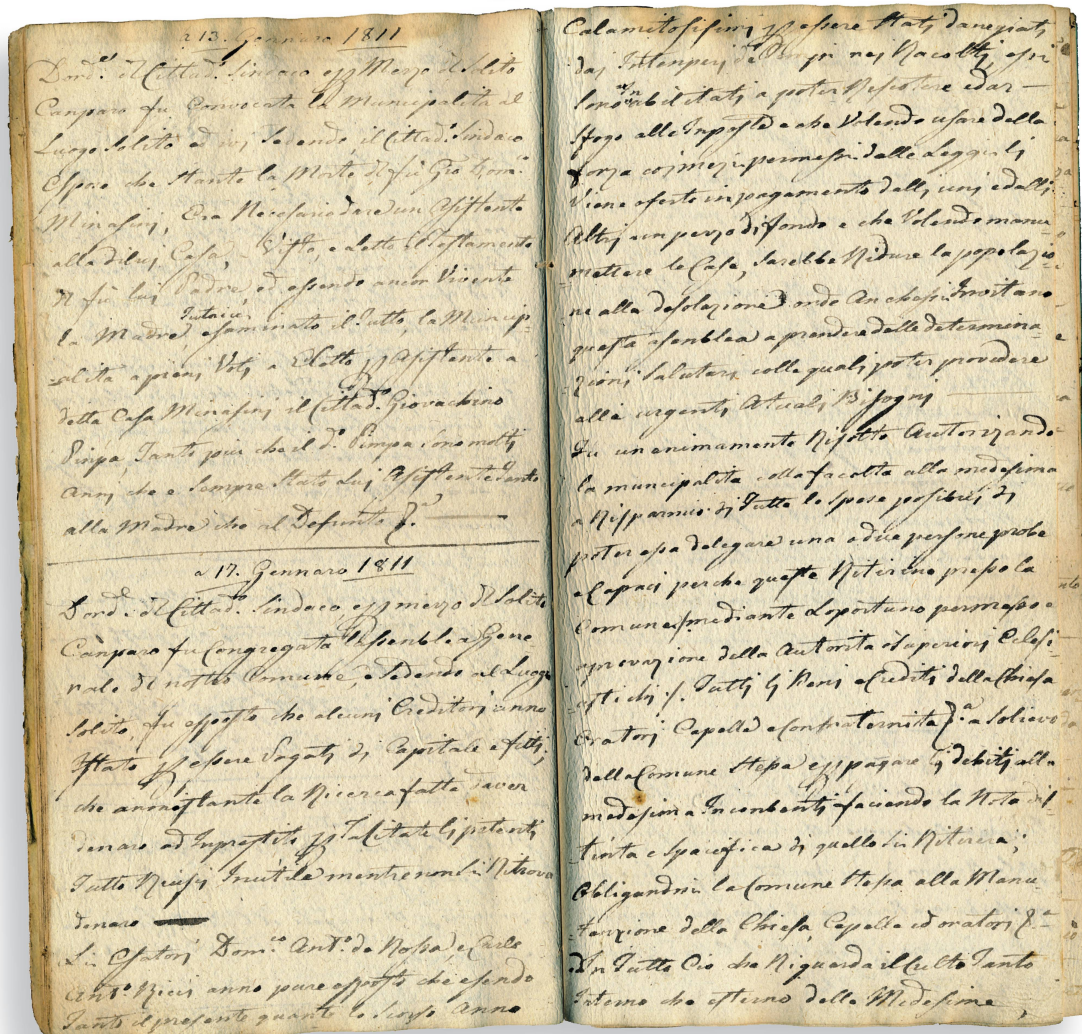 a 13. Gennaro 1811
D'ord.e del Cittad.o Sindaco e pp Mezo del Solito
Canparo fu Convocata la Municipalita al
Luogo Solito ed ivi Sedendo, il Cittad.o Sindaco
Espone che Stante la Morte di fù Gio Dom.co
Minasini, Era Necesario dare un Assistente
alla di lui Casa, Visto, e Letto il Testamento
di fù lui Padre, ed essendo ancor Vivente
la Madre Tutrice, esaminato il Tutto, la Municip-
-alita a pieni Voti a Eletto pp Assistente a
detta Casa Minasini il Cittad.o Giovachino
Pinpa Tanto piu che il d.o Pinpa sono molti
Anni che e Sempre Stato Lui Assistente tanto
alla Madre che al Defunto
a 17. Gennaro 1811
D'ord.e del Cittad.o Sindaco e pp mezzo del Solito
Canparo fu Congregata l'Assenblea Gene
rale di nostro Comune, e Sedendo al Luogo
Solito, fu esposto che alcuni Creditori anno
Istato pp essere Pagati di Capitale e fitti;
che annonistante la Ricerca fatta d'aver
denaro ad Inprestito pp li potenti
Tutto Riusi Inutile mentre non si Ritrova
denaro
Li Esatori Dom.co Ant.o da Rossa, e Carlo
Ant.o Ricci anno pure esposto che essendo
Tanto il presente quanto lo Scorso Anno
Calamitosissimi pp essere Stati danegiati
dai Intenperi de Tenpi nei Racolti essi
Sono inabilitati a poter Riscotere e dar
sfogo alle Inposte e che Volendo usare della
Forza coi mezi permessi dalle Leggi li
Viene oferto in pagamento dalli uni e dalli
Altri un pezzo di fondo e che Volendo manu
mettere le Case, Sarebbe Ridure la popolazio
ne alla desolazione onde Anch'essi Invitano
questa asenblea a prendere delle determina
zioni Salutari colle quali poter provedere
alli urgenti Atuali Bisogni
Fu unanimamente Risolto Autorizando
la municipalita colla facolta alla medesima
a Risparmio di Tutte le Spese possibili di
poter essa delegare una o due persone probe
e Capaci perche queste Ritirino presso la
Comune /:mediante Loportuno permesso e
aprovazione della Autorita Superiori Eclesi
astichi:/ Tutti li Beni e Crediti della Chiesa
Oratori Capelle e Confraternita a Solievo
della Comune Stessa e pp pagare i debiti alla
medesima Inconbenti, faciendo la Nota dis
tinta e Spacifica di quello si Ritirera;
Obligandosi la Comune Stessa alla Manu
tenzione della Chiesa, Capelle ed oratori
ed In Tutto Cio che Riguarda il Culto Tanto
Interno che esterno delle Medesime